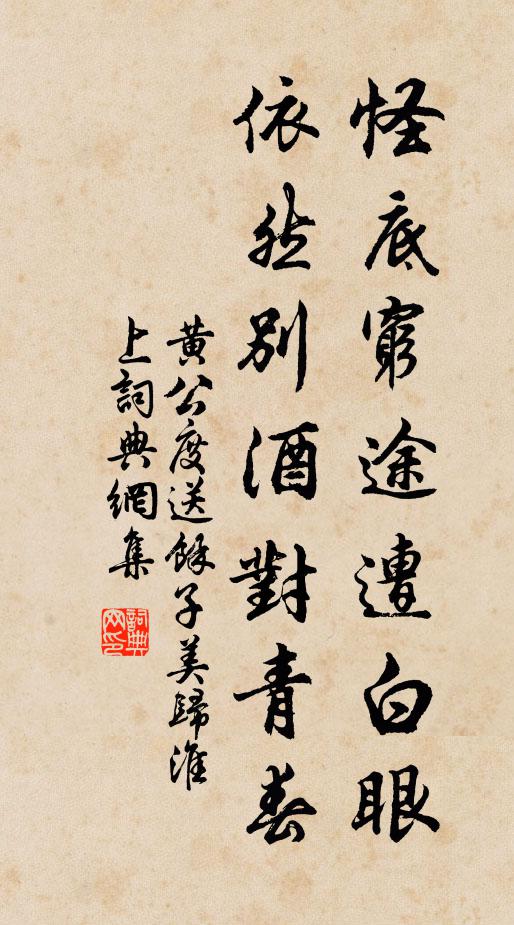 怪底窮途遭白眼
依然別酒對青春
黃公度送餘子美歸淮
上詞典網集
詞典
网印